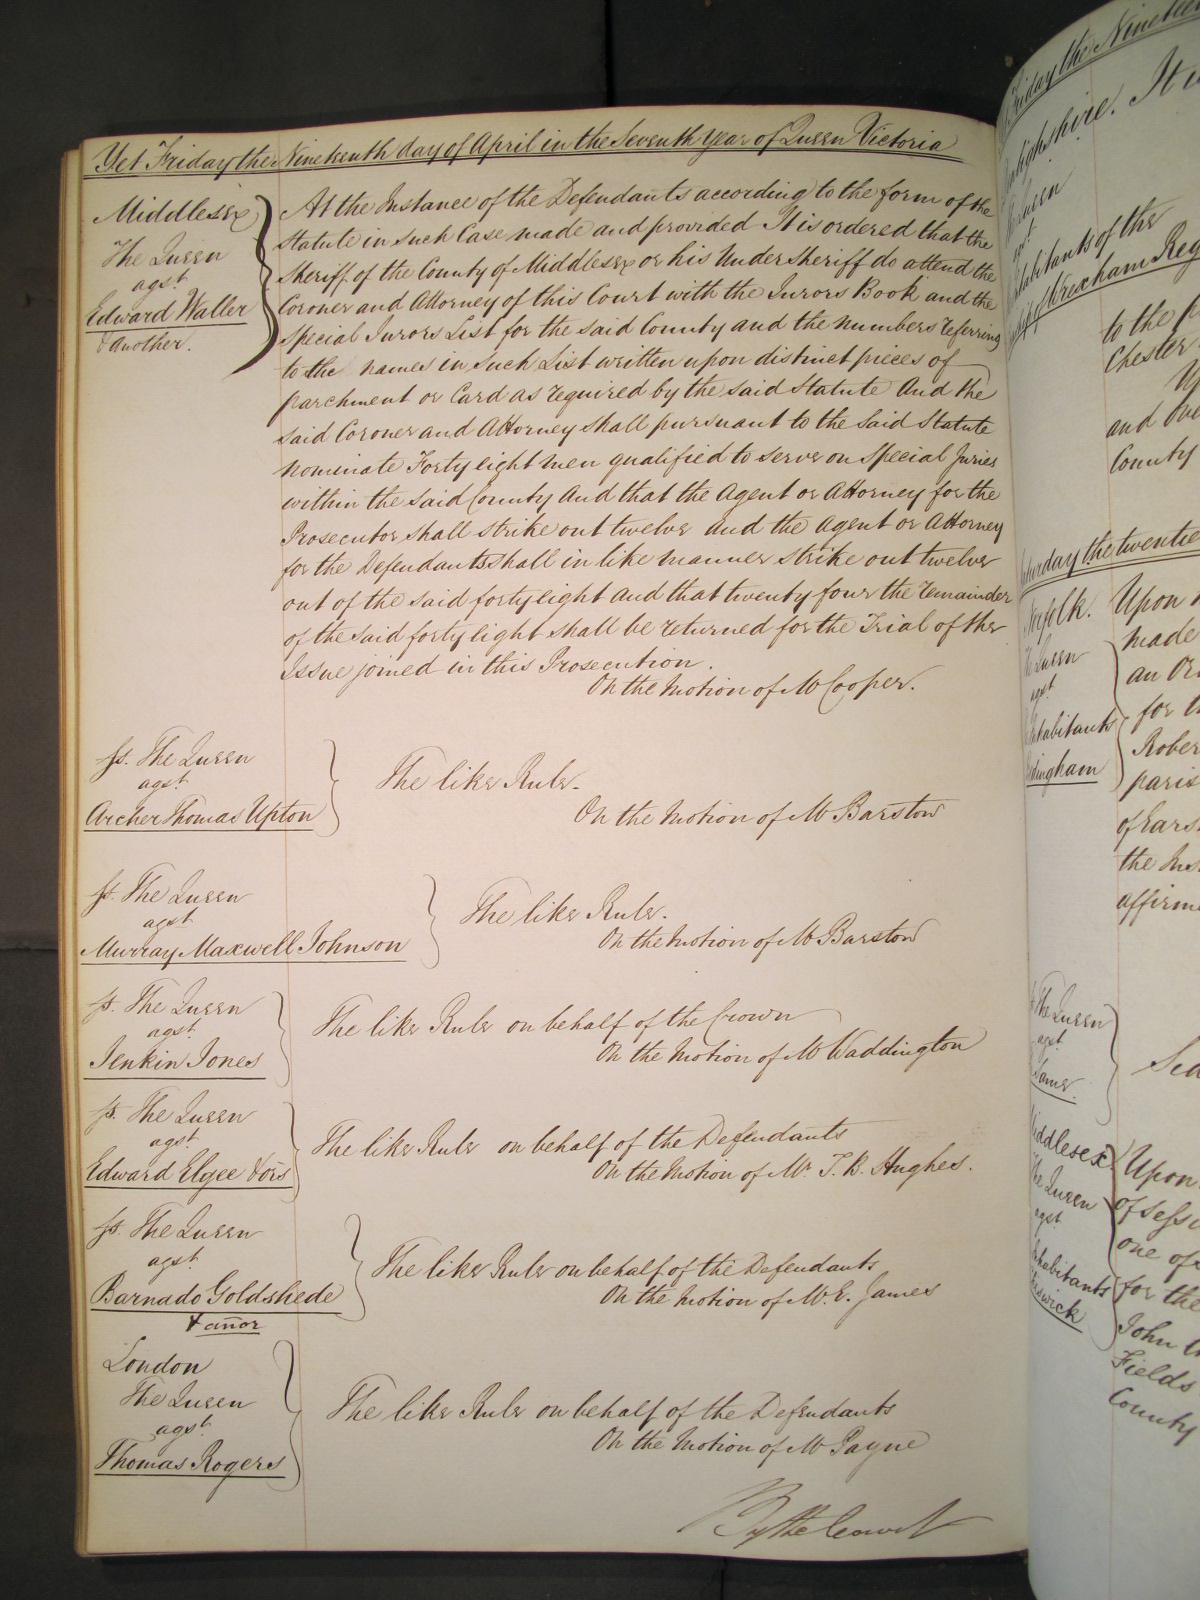 Yet Friday the Nineteenth day of April in the Seventh Year of Queen Victoria
Middlesex
The Queen
agst
Edward Waller
& another.
At the Instance of the Defendants according to the form of the
Statute in such Case made and provided It is ordered that the
Sheriff of the County of Middlesex or his Undersheriff do attend the
Coroner and Attorney of this Court with the Jurors Book and the
Special Jurors List for the said County and the numbers referring
to the names in such List written upon distinct pieces of
parchment or Card as required by the said Statute And the
said Coroner and Attorney shall pursuant to the said Statute
nominate Forty eight men qualified to serve on Special Juries
within the said County And that the Agent or Attorney for the
Prosecutor shall strike out twelve and the Agent or Attorney
for the Defendants shall in like manner strike out twelve
out of the said forty eight and that twenty four the remainder
of the said forty eight shall be returned for the Trial of the
Issue joined in this Prosecution.
On the Motion of Mr Cooper.
ss. The Queen
agst
Archer Thomas Upton
The like Rule.
On the Motion of Mr Barstow
ss. The Queen
agst
Murray Maxwell Johnson
The like Rule.
On the Motion of Mr Barstow
ss. The Queen
agst
Jenkin Jones
The like Rule on behalf of the Crown
On the Motion of Mr Waddington
ss. The Queen
agst
Edward Elgee & ors
The like Rule on behalf of the Defendants
On the Motion of Mr. T. R. Hughes.
ss. The Queen
agst
Barnado Goldshede
& anor
The like Rule on behalf of the Defendants
On the Motion of Mr. E. James
London
The Queen
agst
Thomas Rogers
The like Rule on behalf of the Defendants
On the Motion of Mr Payne
By the Court
Friday the Nineteen
It is
Queen
agst
of the
Wrexham Reg
to the p
Chester
and
County
Saturday the twentie
Norfolk.
The Queen
agst
Inhabitants
Upon
made
an Or
for t
Rober
paris
of Ears
the Ins
affirm
The Queen
agst
Same.
Middlesex
The Queen
agst
Inhabitants
Upon
of Sessi
one of
for the
John
Fields
County